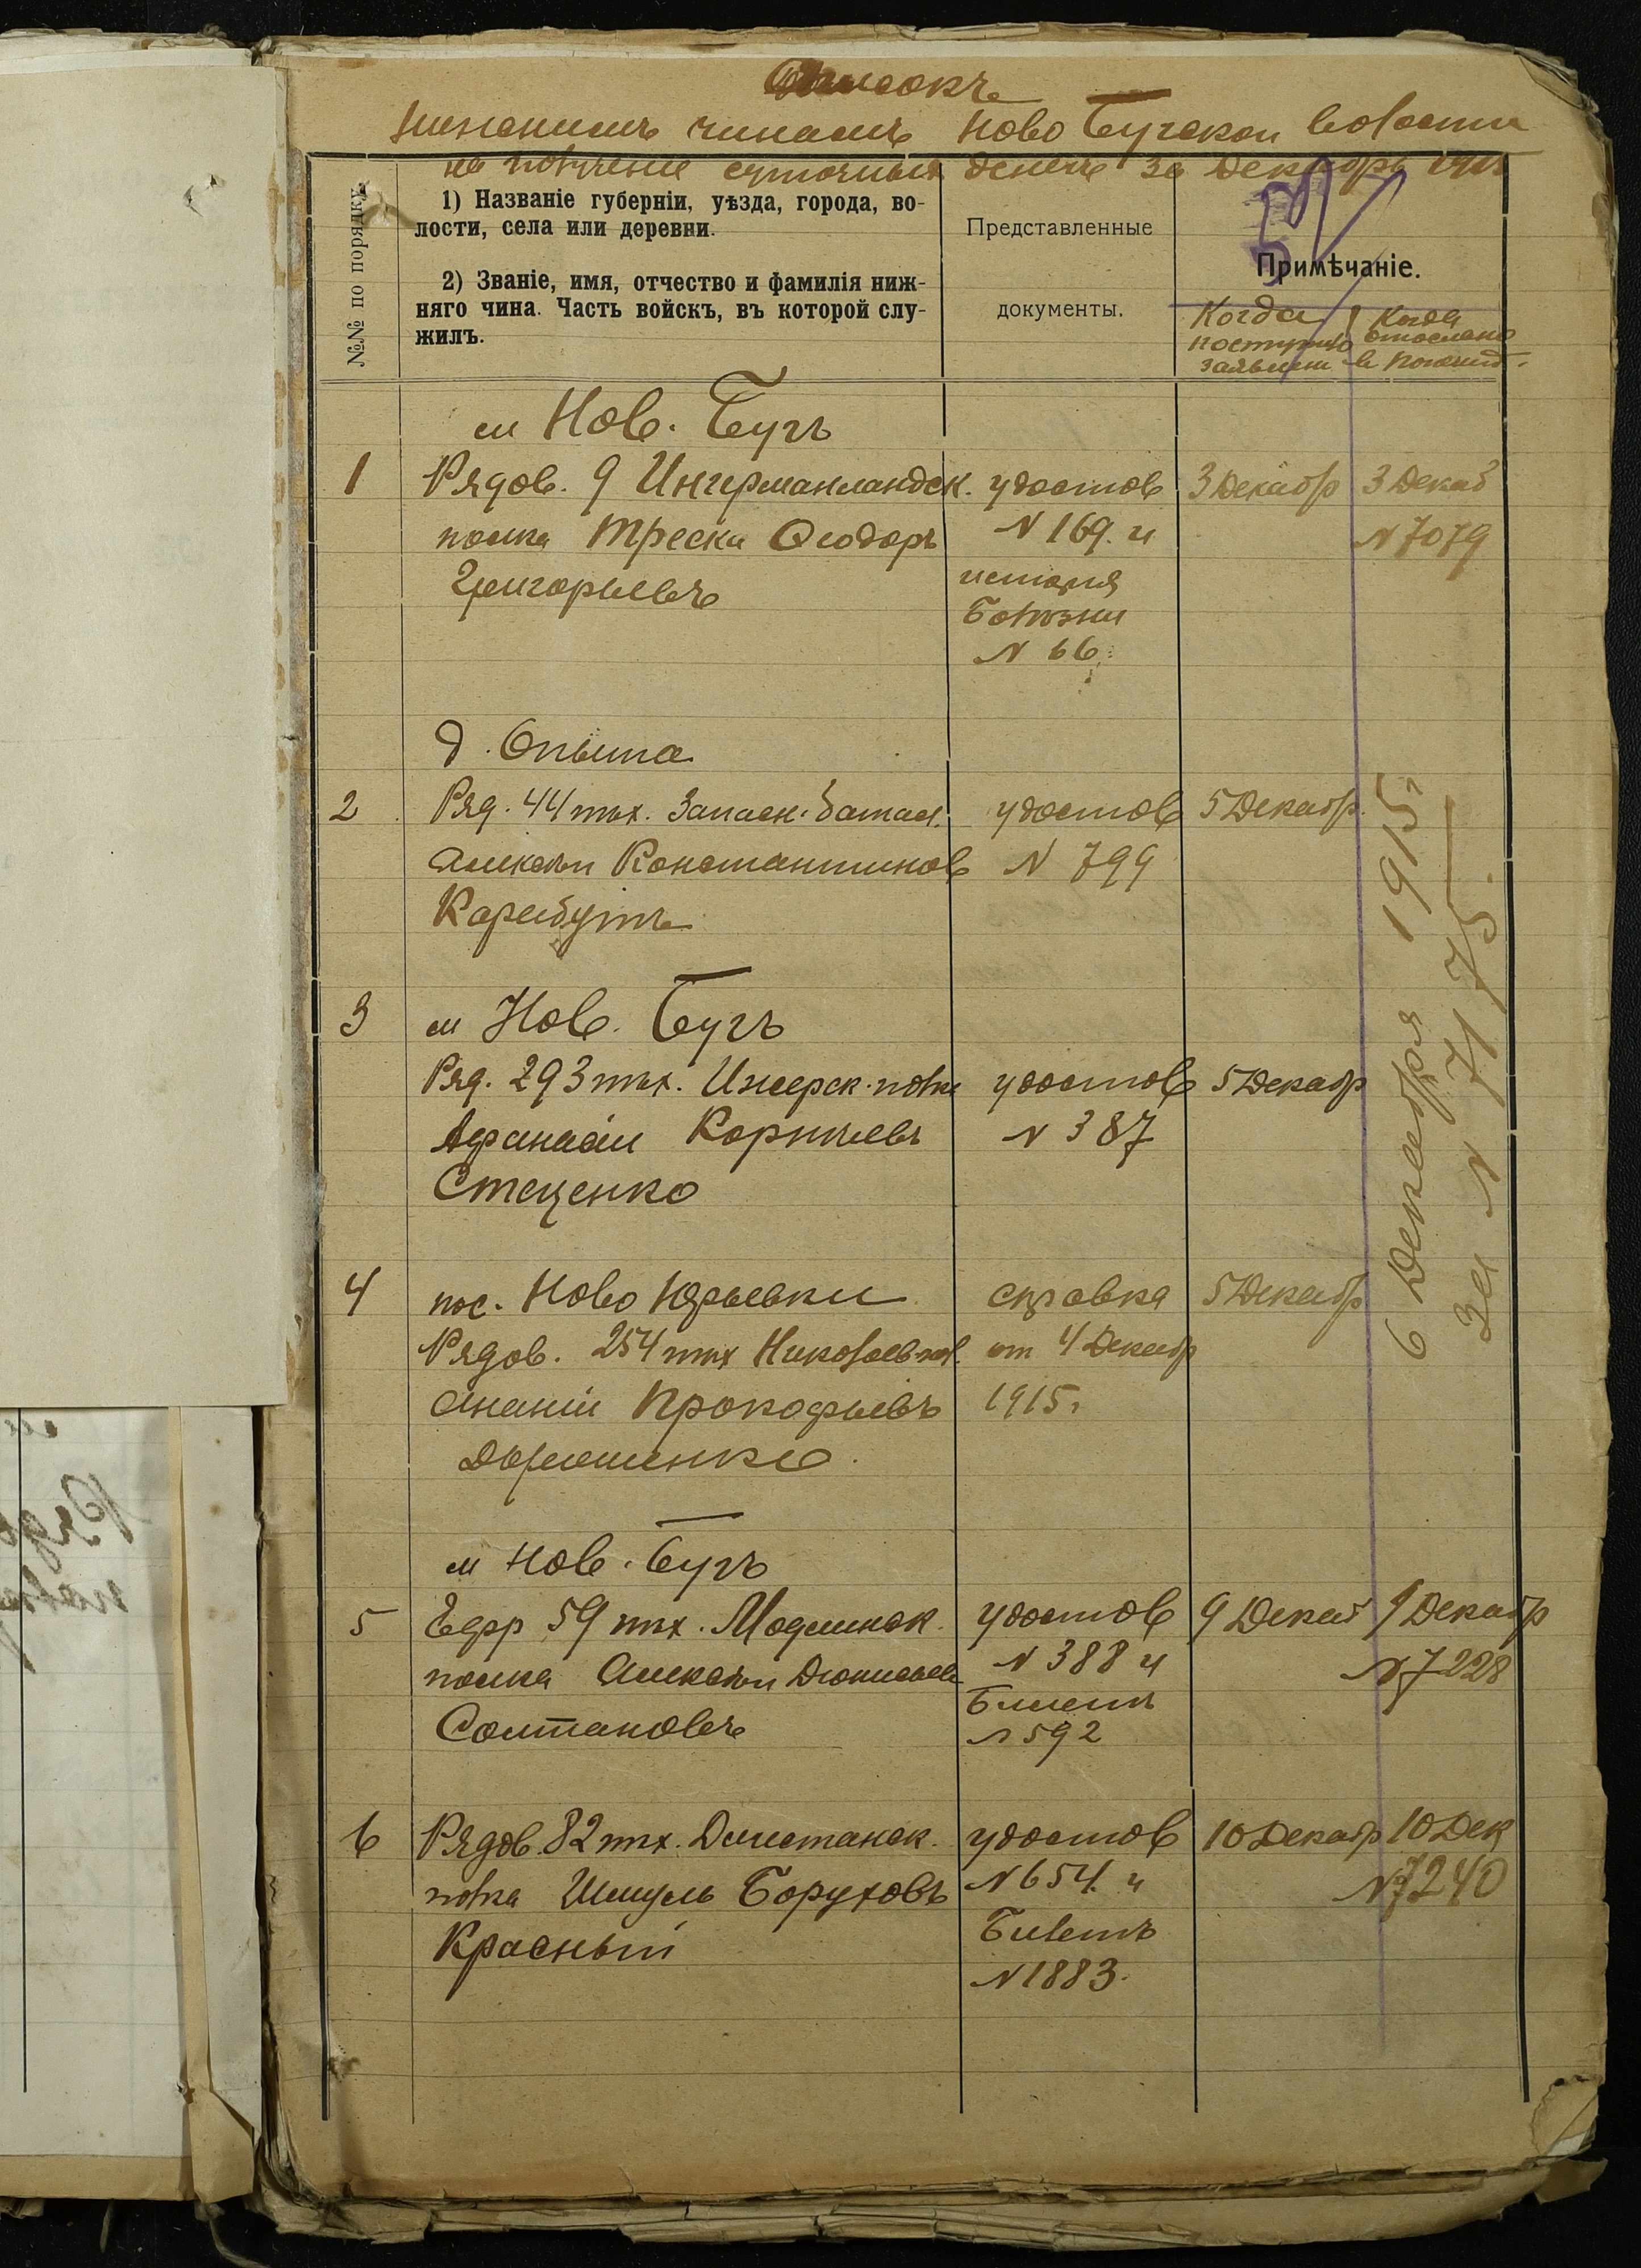 Списокъ
нижнимъ чинамъ Ново Бугской волости
на получение суточныхъ денегъ за Декабрь 1915
№№ по порядку.
1) Названіе губерніи, уѣзда, города, во-
лости, села или деревни.
2) Званіе, имя, отчество и фамилія ниж-
няго чина. Часть войскъ, въ которой слу-
жилъ.
Представленные
документы.
Примѣчаніе.
Когда
поступило
заявлен
Когда
отослано
в
м Нов. Бугъ
1 Рядов. 9 Ингерманландск. удостов 3 Декабр 3 Декаб
полка Трески Ѳеодоръ N 169. и N 7079
Григорьевъ история
болѣзни
N 66
д. Опыта
2 Ряд. 44 пѣх. Запасн. батал. удостов 5 Декабр.
Алексѣй Константинов N 799
Карабутъ
3 м Нов. Бугъ
Ряд. 293 пѣх. Ижорск. полка удостов 5 Декабр
Афанасій Корнѣевъ N 387
Стеценко
6 Декабря 1915 г
за N 7175.
4 пос. Ново Юрьевки справка 5 Декабр
Рядов. 254 пѣх Николаев. пол. от 4 Декабр
Ананій Прокофьевъ 1915 г
Дорошенко.
м Нов. Бугъ
5 Ефр 59 пѣх. Модлинск. удостов 9 Декаб 9 Декабр
полка Алексѣй Дионисьев N 388 и N 7228
Солтановъ Билетъ
N 592
6 Рядов. 82 пѣх. Дагестанск. удостов 10 Декабр 10 Дек
полка Шмуль Боруховъ N 654. и N 7240
Красный Билетъ
N 1883.